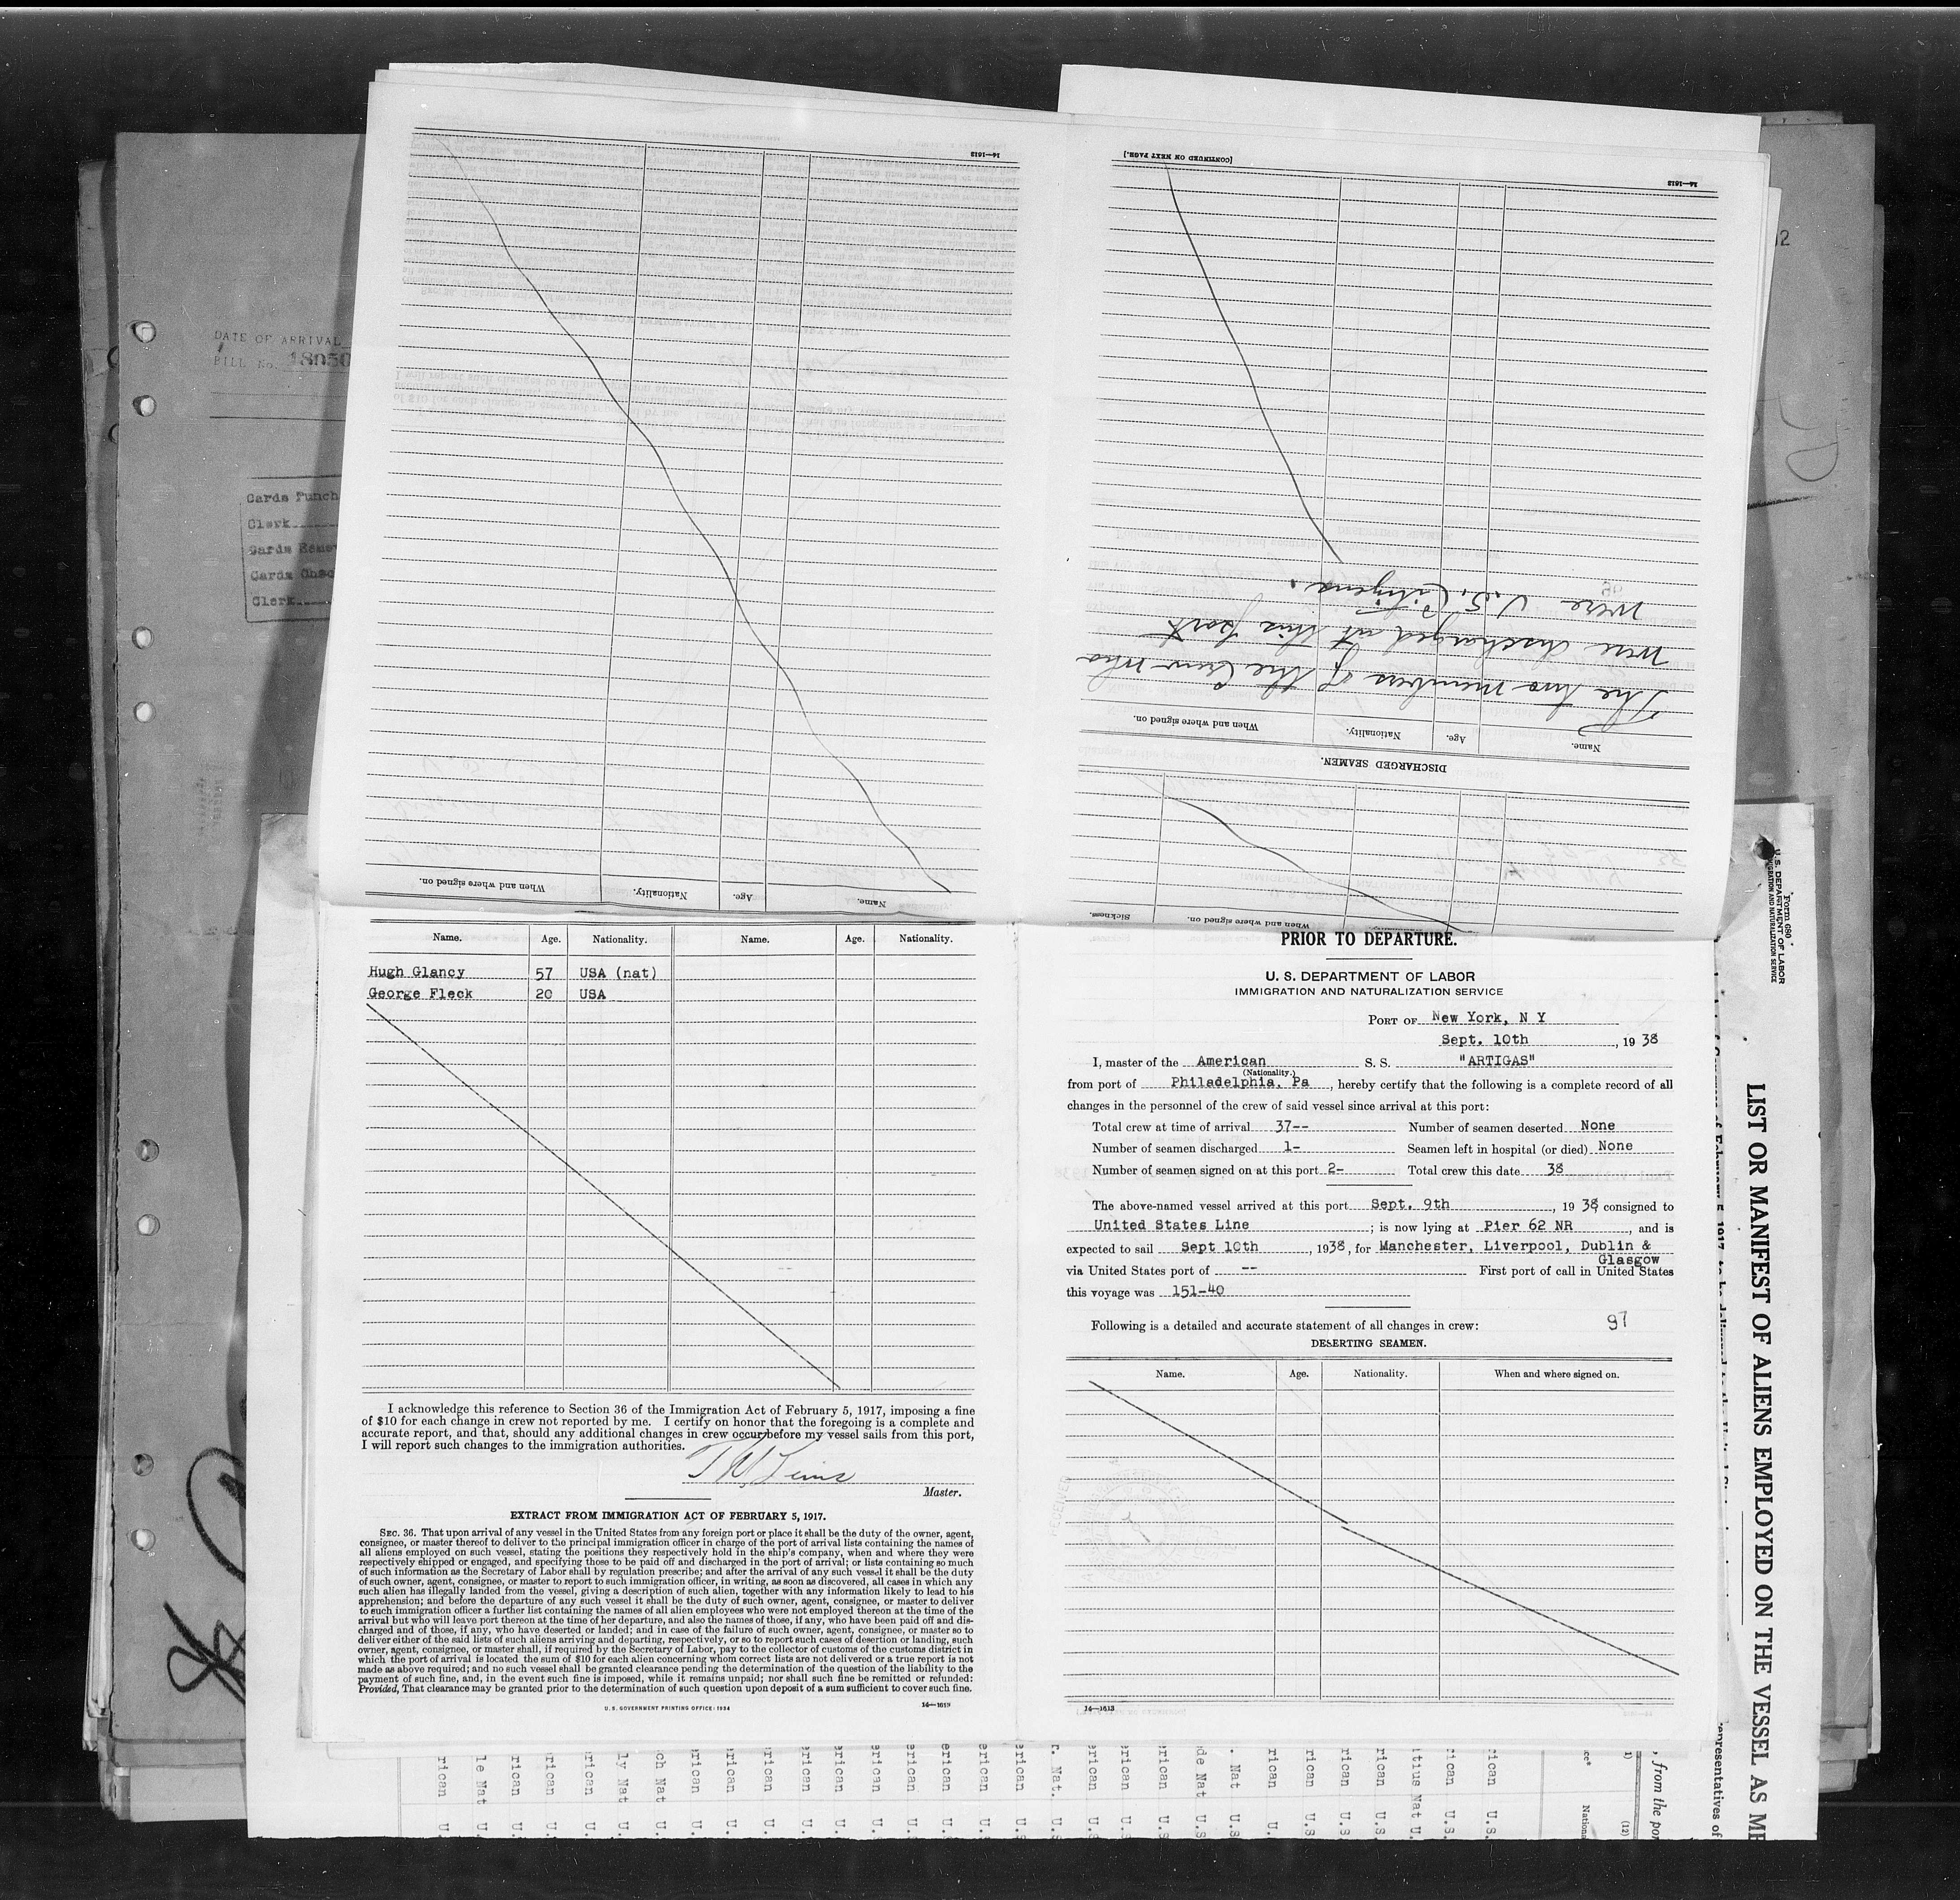 12
DATE OF ARRIVAL
BILL No. 18050
Cards Punch
Clerk
Cards
Cards
Clerk
14—1613
[CONTINUED ON NEXT PAGE.]
14—1613
The two members of the Crew who
were discharged at this port
were U.S. Citizens.
98
Name. Age. Nationality. When and where signed on.
DISCHARGED SEAMEN.
When and where signed on. Sickness.
Name. Age. Nationality. When and where signed on.
Name. Age. Nationality. Name. Age. Nationality.
Hugh Glancy 57 USA (nat)
George Fleck 20 USA
I acknowledge this reference to Section 36 of the Immigration Act of February 5, 1917, imposing a fine
of $10 for each change in crew not reported by me. I certify on honor that the foregoing is a complete and
accurate report, and that, should any additional changes in crew occur before my vessel sails from this port,
I will report such changes to the immigration authorities.
Master.
EXTRACT FROM IMMIGRATION ACT OF FEBRUARY 5, 1917.
SEC. 36. That upon arrival of any vessel in the United States from any foreign port or place it shall be the duty of the owner, agent,
consignee, or master thereof to deliver to the principal immigration officer in charge of the port of arrival lists containing the names of
all aliens employed on such vessel, stating the positions they respectively hold in the ship's company, when and where they were
respectively shipped or engaged, and specifying those to be paid off and discharged in the port of arrival; or lists containing so much
of such information as the Secretary of Labor shall by regulation prescribe; and after the arrival of any such vessel it shall be the duty
of such owner, agent, consignee, or master to report to such immigration officer, in writing, as soon as discovered, all cases in which any
such alien has illegally landed from the vessel, giving a description of such alien, together with any information likely to lead to his
apprehension; and before the departure of any such vessel it shall be the duty of such owner, agent, consignee, or master to deliver
to such immigration officer a further list containing the names of all alien employees who were not employed thereon at the time of the
arrival but who will leave port thereon at the time of her departure, and also the names of those, if any, who have been paid off and dis-
charged and of those, if any, who have deserted or landed; and in case of the failure of such owner, agent, consignee, or master so to
deliver either of the said lists of such aliens arriving and departing, respectively, or so to report such cases of desertion or landing, such
owner, agent, consignee, or master shall, if required by the Secretary of Labor, pay to the collector of customs of the customs district in
which the port of arrival is located the sum of $10 for each alien concerning whom correct lists are not delivered or a true report is not
made as above required; and no such vessel shall be granted clearance pending the determination of the question of the liability to the
payment of such fine, and, in the event such fine is imposed, while it remains unpaid; nor shall such fine be remitted or refunded:
Provided, That clearance may be granted prior to the determination of such question upon deposit of a sum sufficient to cover such fine.
U. S. GOVERNMENT PRINTING OFFICE: 1934 14—1613
PRIOR TO DEPARTURE.
U. S. DEPARTMENT OF LABOR
IMMIGRATION AND NATURALIZATION SERVICE
PORT OF New York, N Y
Sept. 10th, 1938
I, master of the American S. S. "ARTIGAS"
(Nationality.)
from port of Philadelphia, Pa, hereby certify that the following is a complete record of all
changes in the personnel of the crew of said vessel since arrival at this port:
Total crew at time of arrival 37-- Number of seamen deserted None
Number of seamen discharged 1- Seamen left in hospital (or died) None
Number of seamen signed on at this port 2- Total crew this date 38
The above-named vessel arrived at this port Sept. 9th, 1938 consigned to
United States Line; is now lying at Pier 62 NR, and is
expected to sail Sept 10th, 1938, for Manchester, Liverpool, Dublin &
Glasgow
via United States port of -- First port of call in United States
this voyage was 151-40
Following is a detailed and accurate statement of all changes in crew: 97
DESERTING SEAMEN.
Name. Age. Nationality. When and where signed on.
14—1613
Form 680
U. S. DEPARTMENT OF LABOR
IMMIGRATION AND NATURALIZATION SERVICE
LIST OR MANIFEST OF ALIENS EMPLOYED ON THE VESSEL AS ME
representatives of
, from the por
(12)
Nationa